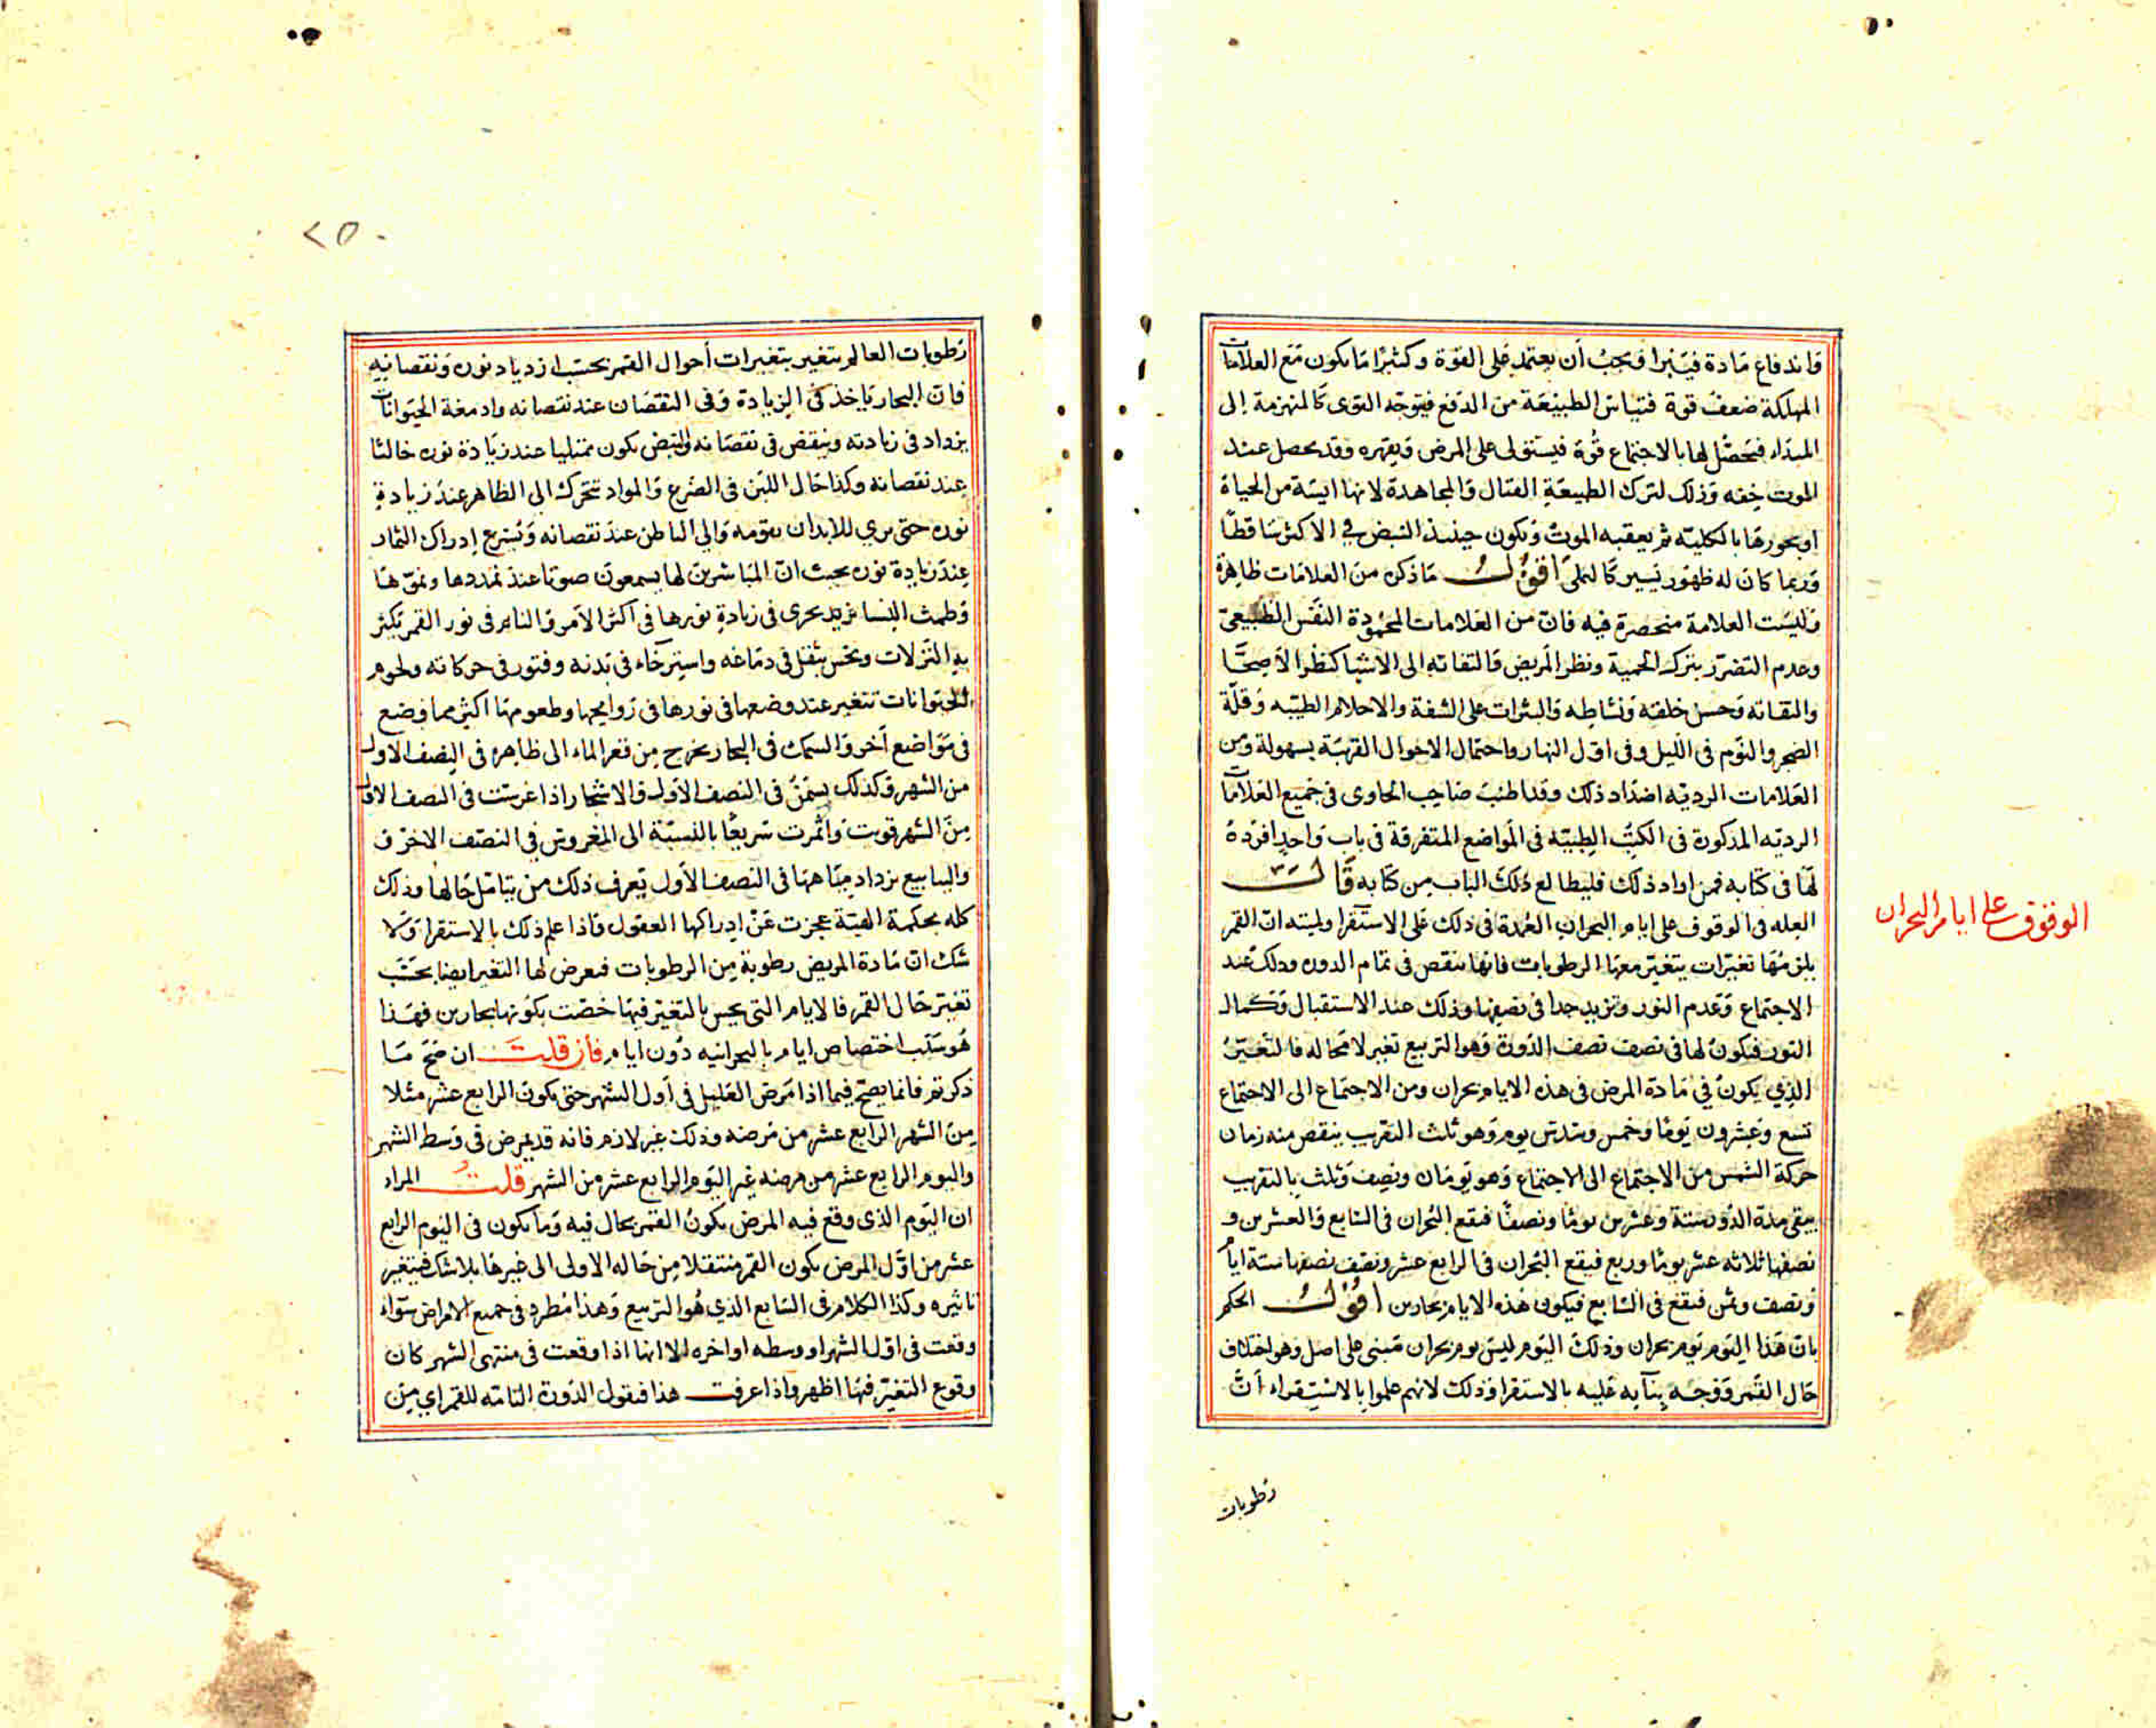 واندفاع مادة فيتبرا فيجب أن يعتمد على القوة وكثيرًا ما يكون مع العلامات
المهلكة ضعف قوة فتياس الطبيعة من الدفع فيتوجه القوى كالمنهزمة إلى
المبداء فيحصل لها بالاجتماع قوة فيستولى على المرض ويقهره وقد يحصل عند
الموت خفه وذلك لترك الطبيعة القتال والمجاهدة لانها ايسة من الحياة
او بحورها بالكلية ثم يعقبه الموت ويكون حينئذ النبض في الاكثر ساقطًا
وربما كان له ظهور يسير كالنملى اقول ما ذكره من العلامات ظاهرة
وليست العلامة منحصرة فيه فان من العلامات المحمودة النفس الطبيعى
وعدم التضرر بترك الحمية ونظر المريض والتفاته الى الاشيا كنظر الاصحا
والتفاته وحسن خلقه ونشاطه والبثرات على الشفة والاحلام الطيبه وقلة
الضجر والنوم فى الليل وفى اول النهار واحتمال الاحوال القريبة بسهولة ومن
العلامات الرديه اضداد ذلك وقد اطنب صاحب الحاوى فى جميع العلامات
الرديه المذكورة فى الكتب الطبية فى المواضع المتفرقة فى باب واحد افرده
لها فى كتابه فمن اراد ذلك فليطالع ذلك الباب من كتابه قال
العله فى الوقوف على ايام البحران العمدة فى ذلك على الاستقرا ولميته ان القمر
يلزمها تغيرات يتغير معها الرطوبات فانها تنقص فى تمام الدوره وذلك عند
الاجتماع وعدم النور وتزيد جدا فى نصفها وذلك عند الاستقبال وكمال
النور فيكون لها فى نصف نصف الدورة وهو التربيع تغير لا محاله فالتغير
الذي يكون في مادة المرض فى هذه الايام بحران ومن الاجتماع الى الاجتماع
تسع وعشرون يومًا وخمس وسدس يوم وهو ثلث التقريب ينقص منه زمان
حركة الشمس من الاجتماع الى الاجتماع وهو يومان ونصف وثلث بالتقريب
يبقى مدة الدور ستة وعشرين يومًا ونصفًا فيقع البحران فى السابع والعشرين و
نصفها ثلاثه عشر يومًا وربع فيقع البحران فى الرابع عشر ونصف نصفها ستة ايام
ونصف وثمن فيقع فى السابع فيكون هذه الايام بحارين اقول الحكم
بان هذا اليوم يوم بحران وذلك اليوم ليس يوم بحران مبنى على اصل وهو اختلاف
حال القمر ووجه بنآيه عليه بالاستقرا وذلك لانهم علموا بالاستقراء انّ
رطوبات
الوقوف على ايام البحران
٢٥٠
رطوبات العالم يتغير بتغيرات أحوال القمر بحسب ازدياد نوره ونقصانه
فان البحار ياخذ فى الزيادة وفى النقصان عند نقصانه وادمغة الحيوانات
يزداد فى زيادته وينقص فى نقصانه والنبض يكون ممتليا عند زيادة نوره خاليًا
عند نقصانه وكذا حال اللبن فى الضرع والمواد تتحرك الى الظاهر عند زيادة
نوره حتى يرى للابدان بقومه والي الباطن عند نقصانه ويسرع إدراك الثمار
عند زيادة نوره بحيث انّ المباشرين لها يسمعون صوتا عند تمددها ونموها
وطمث النسا يجرى فى زيادة نورها فى اكثر الامر والنايم فى نور القمر يكثر
به النزلات ويحس بثقل فى دماغه واسترخاء فى بدنه وفتور فى حركاته ولحوم
الحيوانات تتغير عند وضعها فى نورها فى روايحها وطعومها اكثر مما وضع
فى مواضع أخر والسمك فى البحار يخرج من قعر الماء الى ظاهره فى النصف الاول
من الشهر وكذلك يسمن فى النصف الاول والاشجار اذا غرست فى النصف الاول
من الشهر قويت واثمرت سريعًا بالنسبة الى المغروس في النصف الاخر و
والينابيع يزداد مياهها فى النصف الأول يعرف ذلك من يتامل حالها وذلك
كله بحكمة الهية عجزت عن إدراكها العقول واذا علم ذلك بالاستقرا ولا
شك ان مادة المريض رطوبة من الرطوبات فيعرض لها التغير ايضا بحسب
تغير حال القمر فالايام التى يحس بالتغير فيها خصت بكونها بحارين فهذا
هو سبب اختصاص ايام بالبحرانيه دون ايام فان قلت ان صح ما
ذكرتم فانما يصح فيما اذا مرض العليل فى أول الشهر حتى يكون الرابع عشر مثلا
من الشهر الرابع عشر من مرضه وذلك غير لازم فانه قد يمرض فى وسط الشهر
واليوم الرابع عشر من مرضه غير اليوم الرابع عشر من الشهر قلت المراد
ان اليوم الذى وقع فيه المرض يكون القمر بحال فيه وما يكون فى اليوم الرابع
عشر من اول المرض يكون القمر منتقلا من حاله الاولى الى غيرها بلا شك فيتغير
تاثيره وكذا الكلام فى السابع الذي هو التربيع وهذا مطرد فى جميع الامراض سواء
وقعت فى اول الشهر او وسطه او اخره الا انها اذا وقعت فى منتهى الشهر كان
وقوع التغير فيها اظهر واذا عرفت هذا فنقول الدورة التامه للقمر اي من